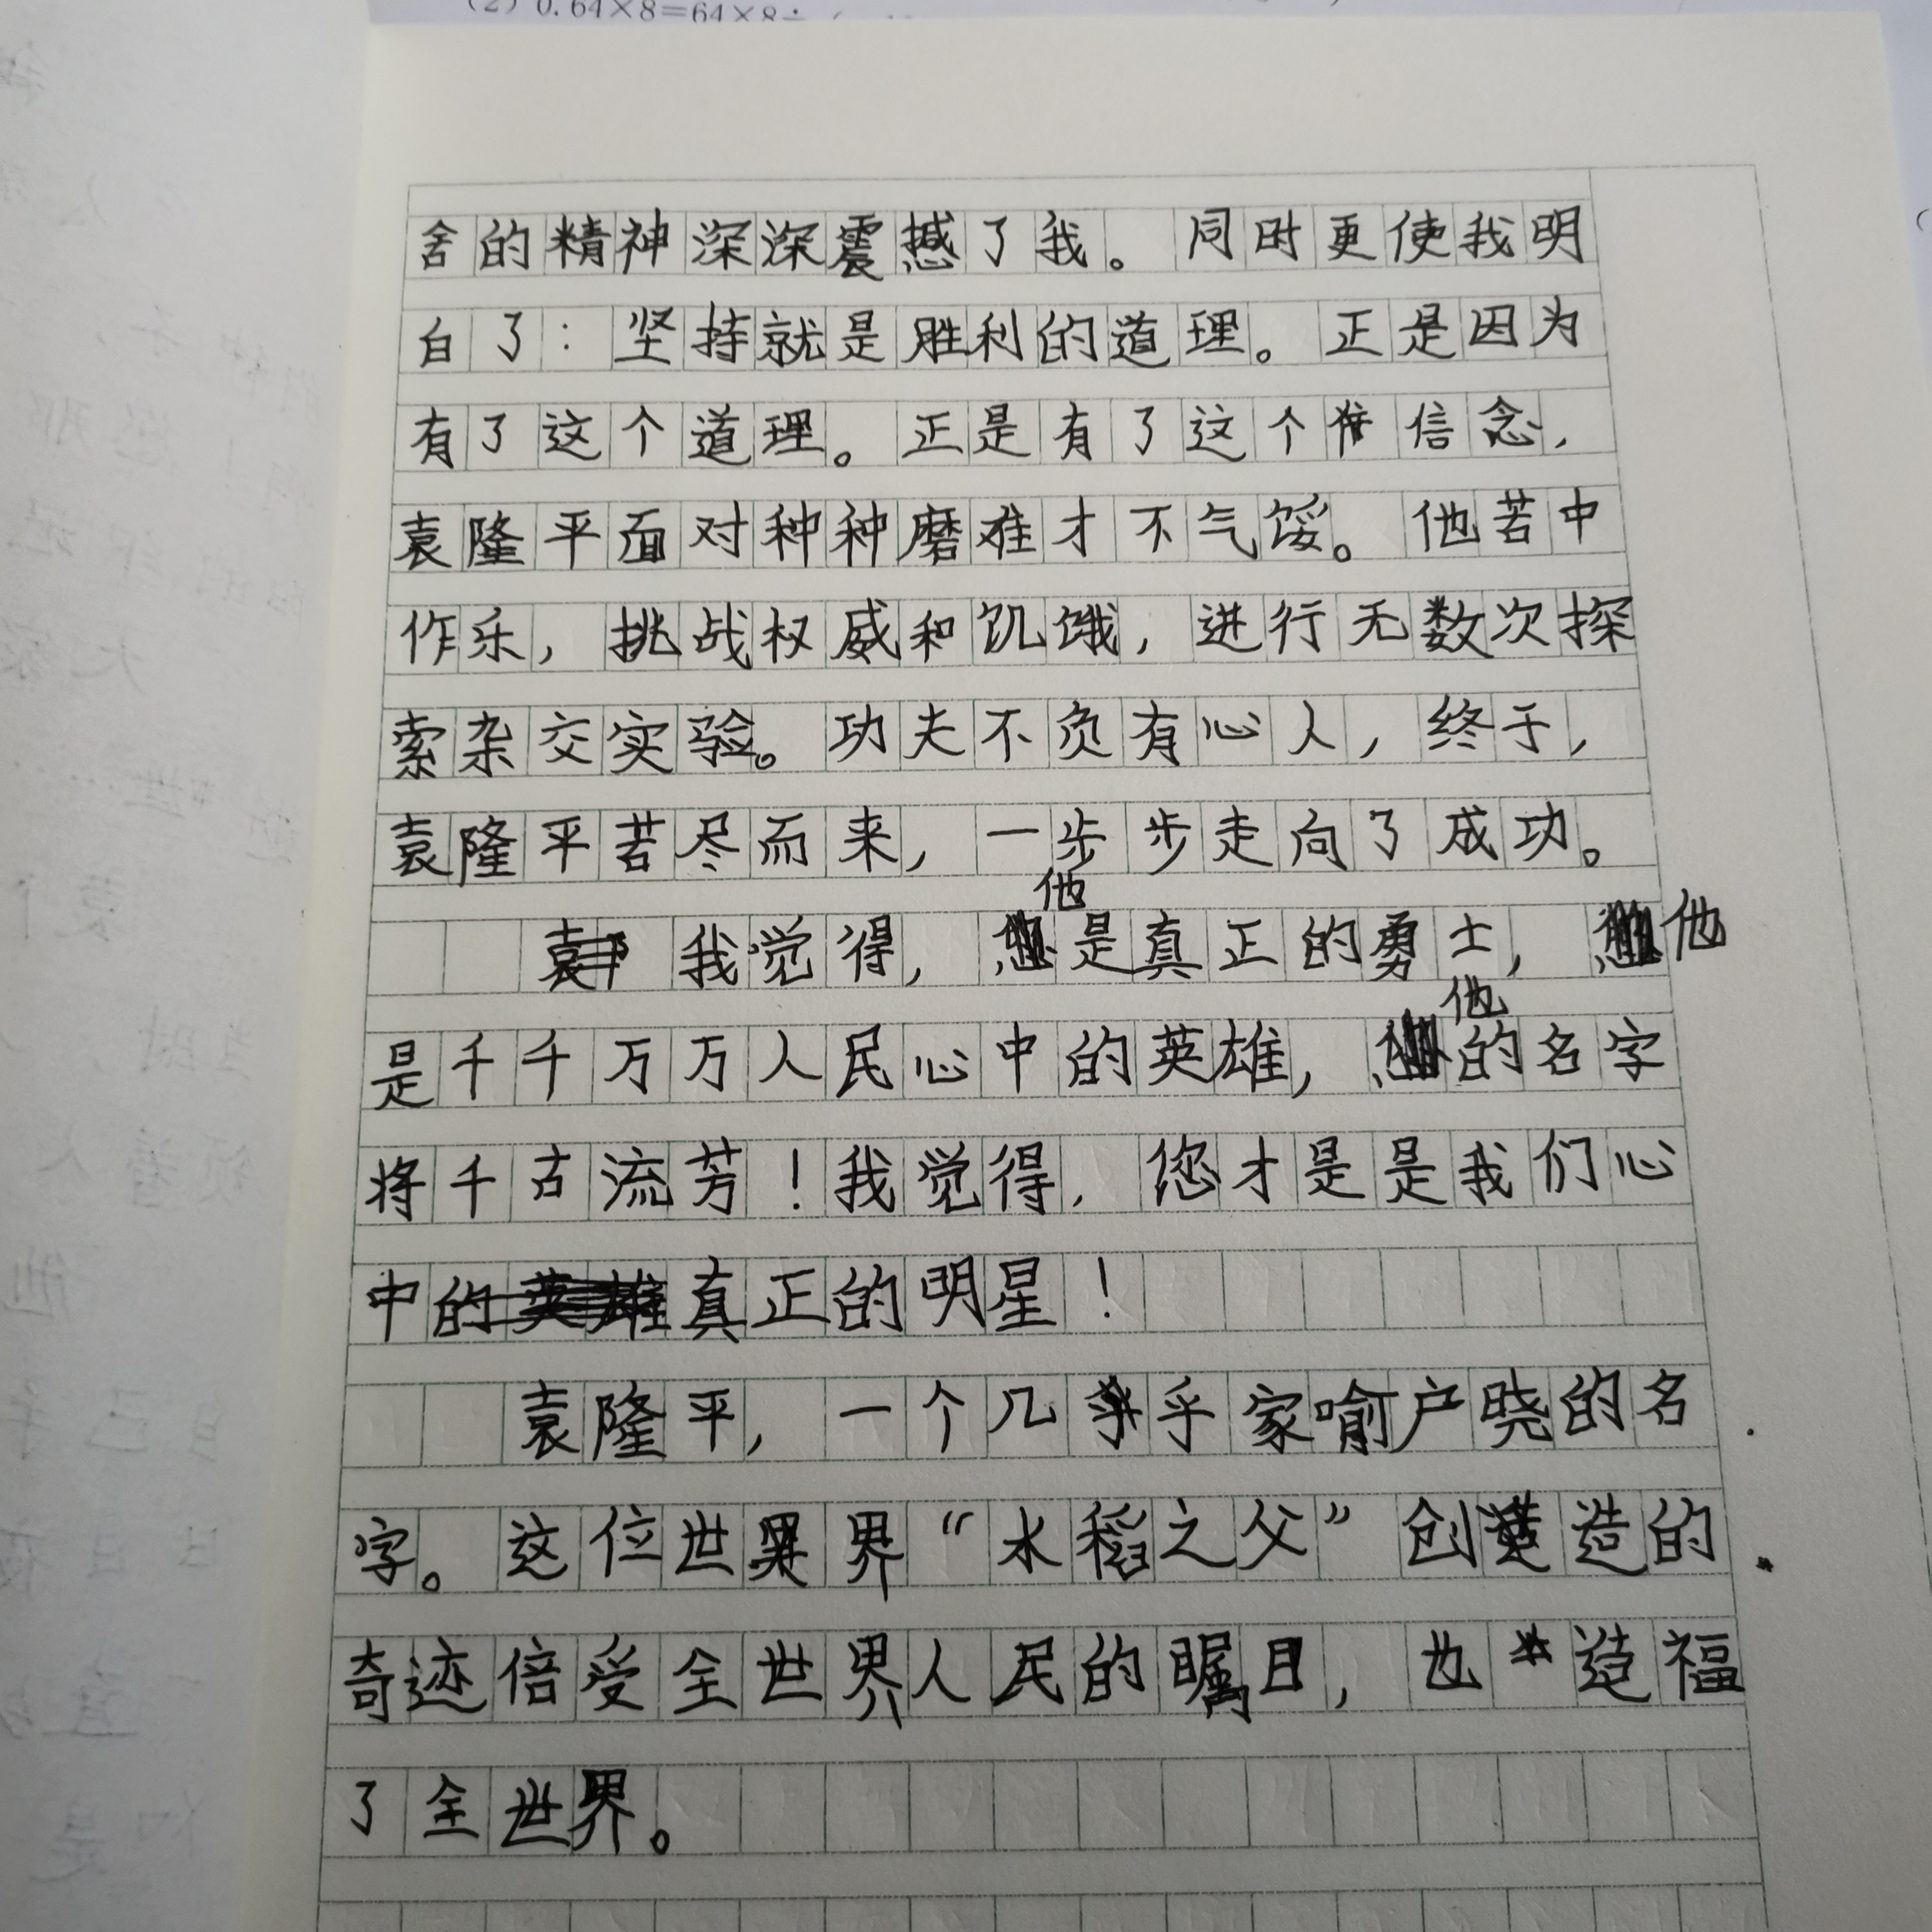 (2) 0.64×8=64×8÷(
舍的精神深深震撼了我。同时更使我明
白了：坚持就是胜利的道理。正是因为
有了这个道理。正是有了这个信念，
袁隆平面对种种磨难才不气馁。他苦中
作乐，挑战权威和饥饿，进行无数次探
索杂交实验。功夫不负有心人，终于，
袁隆平苦尽而来，一步步走向了成功。
我觉得，他是真正的勇士，他
是千千万万人民心中的英雄，他的名字
将千古流芳！我觉得，您才是是我们心
中的真正的明星！
袁隆平，一个几乎家喻户晓的名
字。这位世界“水稻之父”创造的
奇迹倍受全世界人民的瞩目，也造福
了全世界。